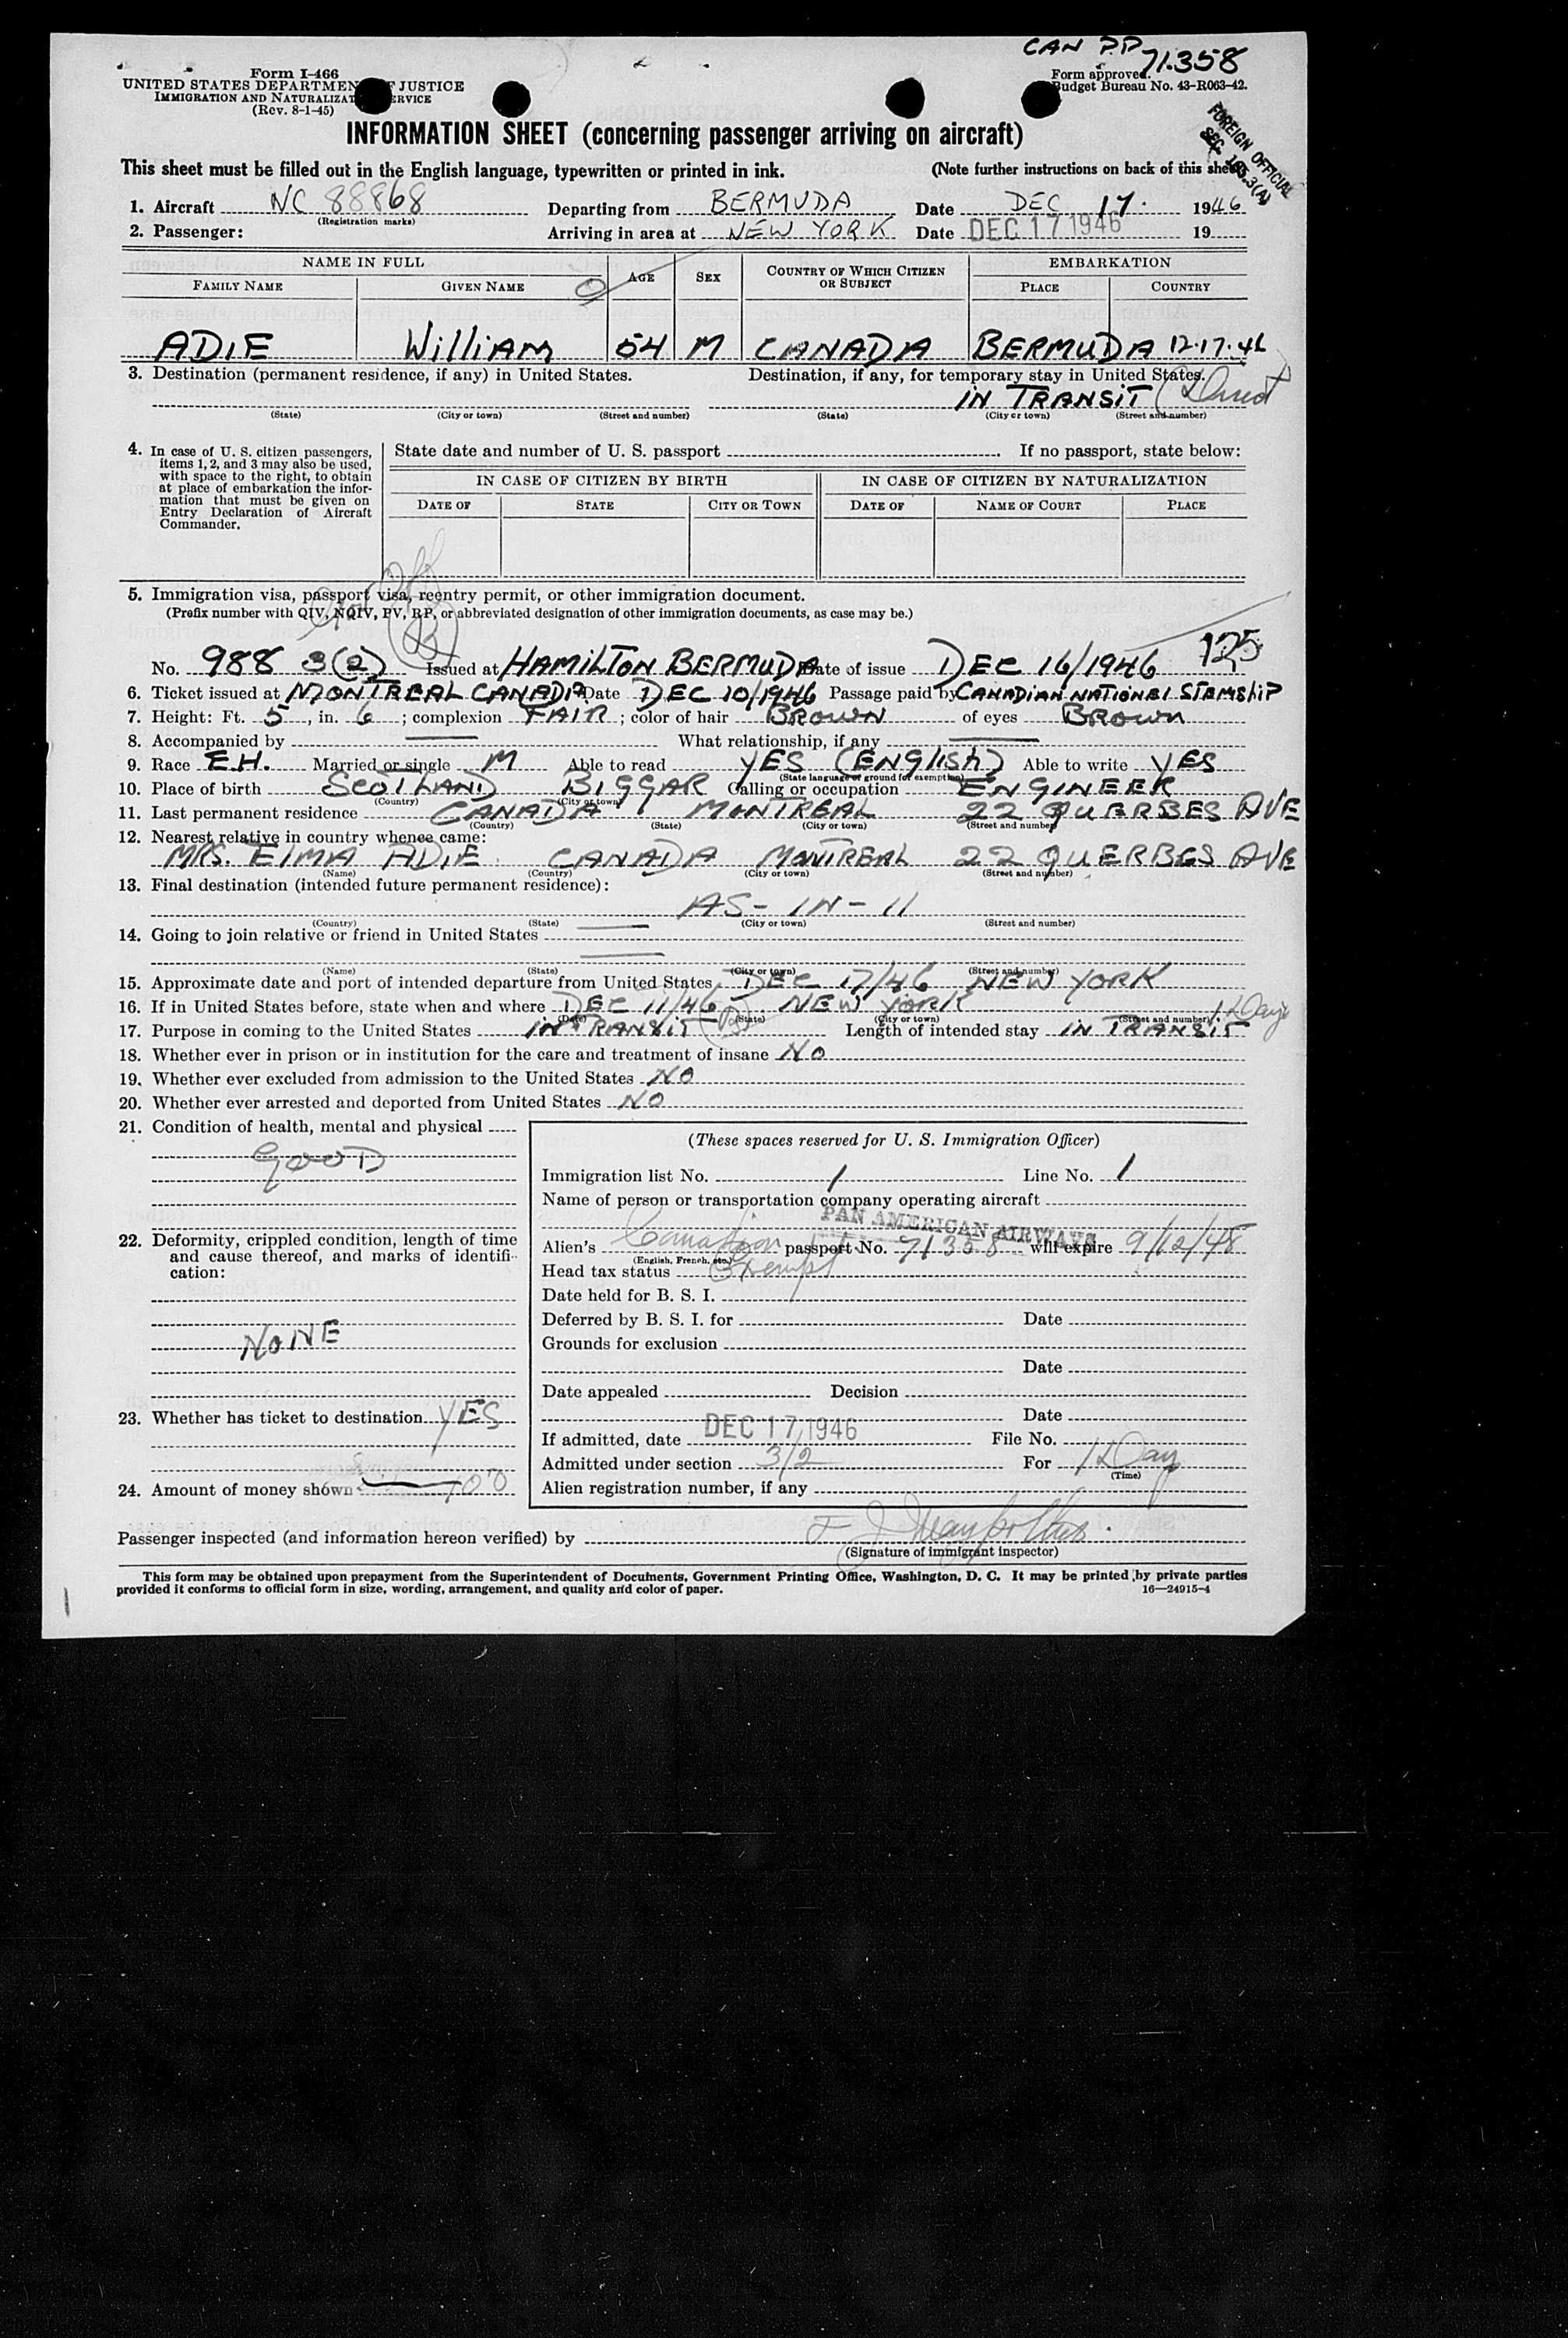 CAN P.P. 71358
Form I-466
UNITED STATES DEPARTMENT OF JUSTICE
IMMIGRATION AND NATURALIZATION SERVICE
(Rev. 8-1-45)
Form approved.
Budget Bureau No. 43-R063-42.
FOREIGN OFFICIAL
INFORMATION SHEET (concerning passenger arriving on aircraft)
This sheet must be filled out in the English language, typewritten or printed in ink. (Note further instructions on back of this sheet)
1. Aircraft NC 88868 Departing from BERMUDA Date DEC 17. 1946
(Registration marks)
2. Passenger: Arriving in area at NEW YORK Date DEC 17 1946 19
NAME IN FULL AGE SEX COUNTRY OF WHICH CITIZEN OR SUBJECT EMBARKATION
FAMILY NAME GIVEN NAME PLACE COUNTRY
ADIE William 54 M CANADA BERMUDA 12.17.46
3. Destination (permanent residence, if any) in United States. Destination, if any, for temporary stay in United States.
IN TRANSIT
(State) (City or town) (Street and number) (State) (City or town) (Street and number)
4. In case of U. S. citizen passengers, items 1, 2, and 3 may also be used, with space to the right, to obtain at place of embarkation the information that must be given on Entry Declaration of Aircraft Commander.
State date and number of U. S. passport If no passport, state below:
IN CASE OF CITIZEN BY BIRTH IN CASE OF CITIZEN BY NATURALIZATION
DATE OF STATE CITY OR TOWN DATE OF NAME OF COURT PLACE
5. Immigration visa, passport visa, reentry permit, or other immigration document.
(Prefix number with QIV, NQIV, PV, RP, or abbreviated designation of other immigration documents, as case may be.)
125
No. 988 3(2) Issued at HAMILTON BERMUDA Date of issue DEC 16/1946
6. Ticket issued at MONTREAL CANADA Date DEC 10/1946 Passage paid by CANADIAN NATIONAL STEMSHIP
7. Height: Ft. 5, in. 6; complexion FAIR; color of hair BROWN of eyes BROWN
8. Accompanied by What relationship, if any
9. Race E.H. Married or single M Able to read YES (ENGLISH) Able to write YES
(State language or ground for exemption)
10. Place of birth SCOTLAND BIGGAR Calling or occupation ENGINEER
(Country) (City or town)
11. Last permanent residence CANADA MONTREAL 22 QUERBES AVE
(Country) (State) (City or town) (Street and number)
12. Nearest relative in country whence came:
MRS. ELMA ADIE CANADA MONTREAL 22 QUERBES AVE
(Name) (Country) (City or town) (Street and number)
13. Final destination (intended future permanent residence):
AS - IN - 11
(Country) (State) (City or town) (Street and number)
14. Going to join relative or friend in United States
(Name) (State) (City or town) (Street and number)
15. Approximate date and port of intended departure from United States DEC 17/46 NEW YORK
16. If in United States before, state when and where DEC 11/46 NEW YORK
(Date) (State) (City or town) (Street and number)
17. Purpose in coming to the United States IN TRANSIT Length of intended stay IN TRANSIT 1 Day
18. Whether ever in prison or in institution for the care and treatment of insane NO
19. Whether ever excluded from admission to the United States NO
20. Whether ever arrested and deported from United States NO
21. Condition of health, mental and physical
GOOD
22. Deformity, crippled condition, length of time and cause thereof, and marks of identification:
NONE
23. Whether has ticket to destination YES
24. Amount of money shown 100
(These spaces reserved for U. S. Immigration Officer)
Immigration list No. 1 Line No. 1
Name of person or transportation company operating aircraft
PAN AMERICAN AIRWAYS
Alien's Canadian passport No. 71358 will expire 9/12/48
(English, French, etc.)
Head tax status Exempt
Date held for B. S. I.
Deferred by B. S. I. for Date
Grounds for exclusion
Date
Date appealed Decision
Date
If admitted, date DEC 17 1946 File No.
Admitted under section 3/2 For 1 Day
(Time)
Alien registration number, if any
Passenger inspected (and information hereon verified) by
(Signature of immigrant inspector)
This form may be obtained upon prepayment from the Superintendent of Documents, Government Printing Office, Washington, D. C. It may be printed by private parties
provided it conforms to official form in size, wording, arrangement, and quality and color of paper. 16—24915-4